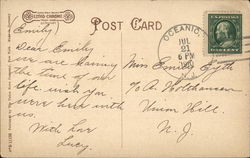 LITHO-CHROME
POST CARD
OCEANIC,
JUL
21
6 PM
N.J.
Emily
Dear Emily
we are having
the time of our
life. wish you
were here with
us.
With Love
Lucy.
Miss Emily
Union Hill.
N. J.